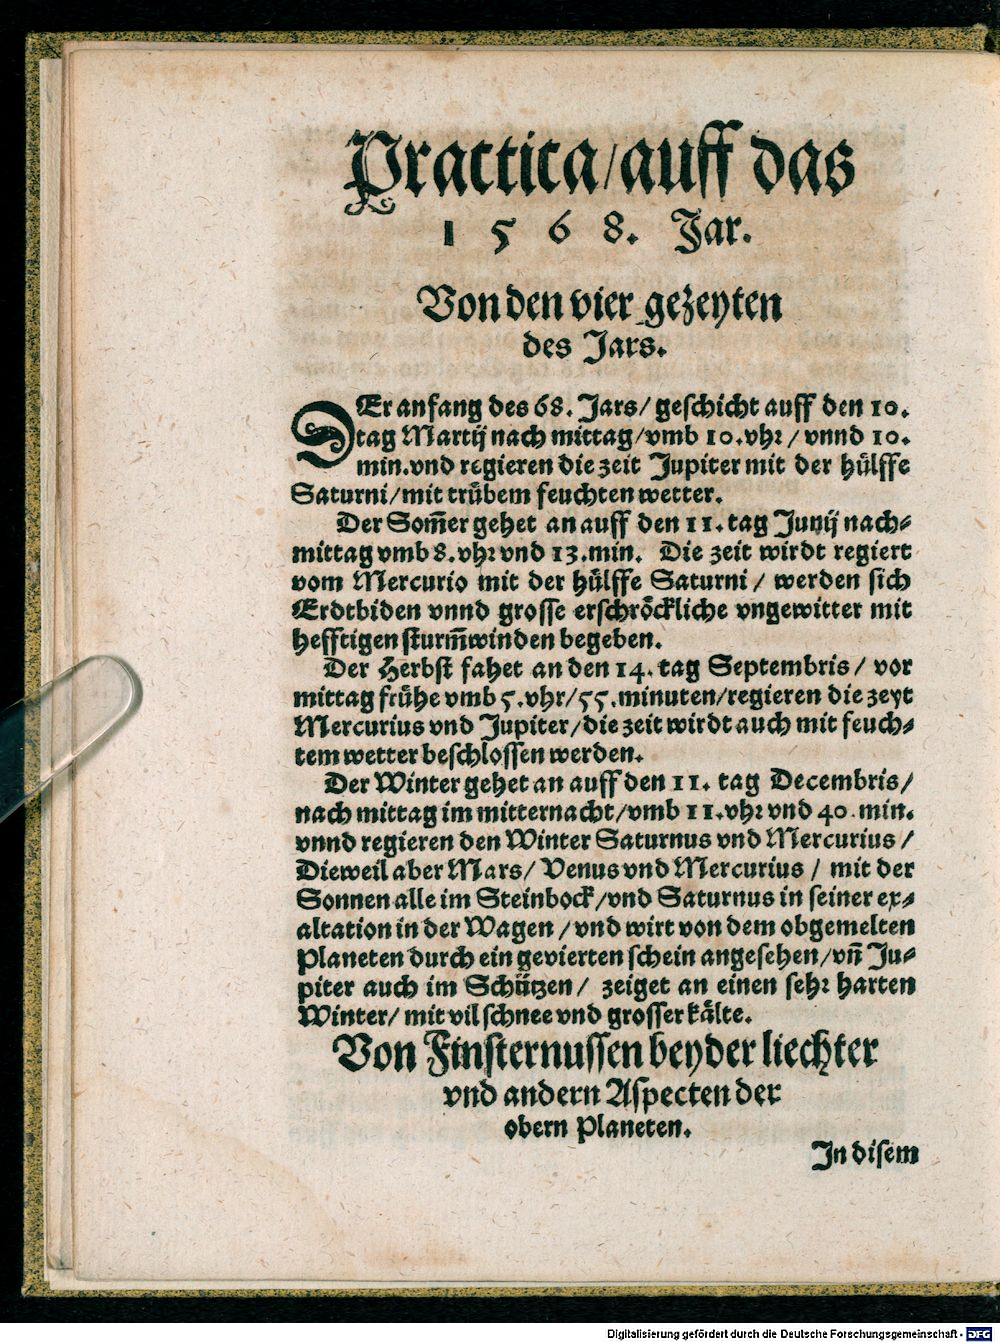 Practica/ auff das
1 5 6 8. Jar.
Von den vier gezeyten
des Jars.
DEr anfang des 68. Jars/ geschicht auff den 10.
tag Martij nach mittag/ vmb 10. vhr/ vnnd 10.
min. vnd regieren die zeit Jupiter mit der hülffe
Saturni/ mit trübem feuchten wetter.
Der Som̄er gehet an auff den 11. tag Junij nach⸗
mittag vmb 8. vhr vnd 13. min. Die zeit wirdt regiert
vom Mercurio mit der hülffe Saturni/ werden sich
Erdtbiden vnnd grosse erschröckliche vngewitter mit
hefftigen sturm̄winden begeben.
Der Herbst fahet an den 14. tag Septembris/ vor
mittag frühe vmb 5. vhr/ 55. minuten/ regieren die zeyt
Mercurius vnd Jupiter/ die zeit wirdt auch mit feuch⸗
tem wetter beschlossen werden.
Der Winter gehet an auff den 11. tag Decembris/
nach mittag im mitternacht/ vmb 11. vhr vnd 40. min.
vnnd regieren den Winter Saturnus vnd Mercurius/
Dieweil aber Mars/ Venus vnd Mercurius/ mit der
Sonnen alle im Steinbock/ vnd Saturnus in seiner ex⸗
altation in der Wagen/ vnd wirt von dem obgemelten
Planeten durch ein gevierten schein angesehen/ vn̄ Ju⸗
piter auch im Schützen/ zeiget an einen sehr harten
Winter/ mit vil schnee vnd grosser kälte.
Von Finsternussen beyder liechter
vnd andern Aspecten der
obern Planeten.
In disem
Digitalisierung gefördert durch die Deutsche Forschungsgemeinschaft - DFG